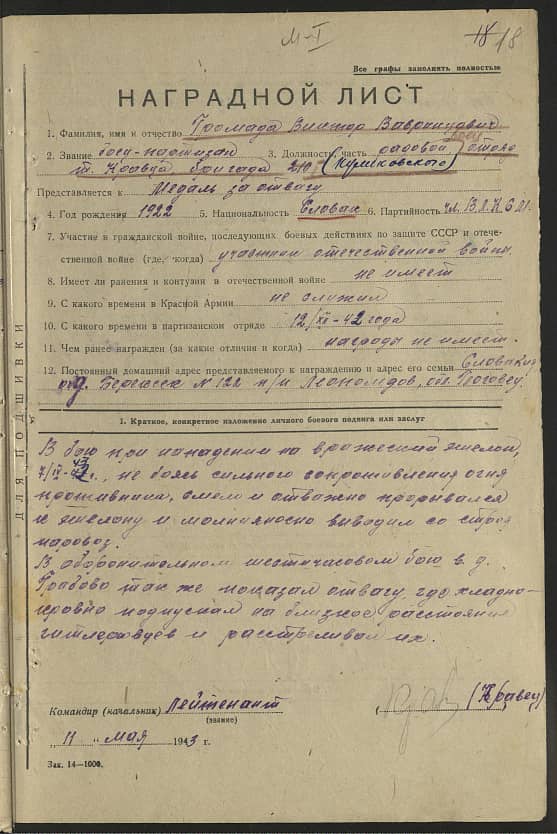 М-I
18 18
Все графы заполнять полностью
НАГРАДНОЙ ЛИСТ
1. Фамилия, имя и отчество Громада Виктор Вавринцович
2. Звание боец-партизан 3. Должность, часть рядовой боец отряд
т. Кравца, бригада 210 (Куликовского)
Представляется к Медаль за отвагу
4. Год рождения 1922 5. Национальность Словак 6. Партийность чл. В.Л.К.С.М.
7. Участие в гражданской войне, последующих боевых действиях по защите СССР и отече-
ственной войне (где, когда) участник отечественной войны
8. Имеет ли ранения и контузии в отечественной войне не имеет
9. С какого времени в Красной Армии не служил
10. С какого времени в партизанском отряде 12/XI-42 года
11. Чем ранее награжден (за какие отличия и когда) награды не имеет.
12. Постоянный домашний адрес представляемого к награждению и адрес его семьи Словакия
д. № 122 п/и
ДЛЯ ПОДШИВКИ
I. Краткое, конкретное изложение личного боевого подвига или заслуг
В бою при нападении на вражеский эшелон,
7/IV-43 г., не боясь сильного сопротивления огня
противника, смело и отважно прорывался
к эшелону и молниеносно выводил со строя
паровоз.
В оборонительном шестичасовом бою в д.
Грабово так же показал отвагу, где хладно-
кровно подпускал на близкое расстояние
гитлеровцев и расстреливал их.
Командир (начальник) Лейтенант (Кравец)
(звание)
"11" мая 1943 г.
Зак. 14—1000.